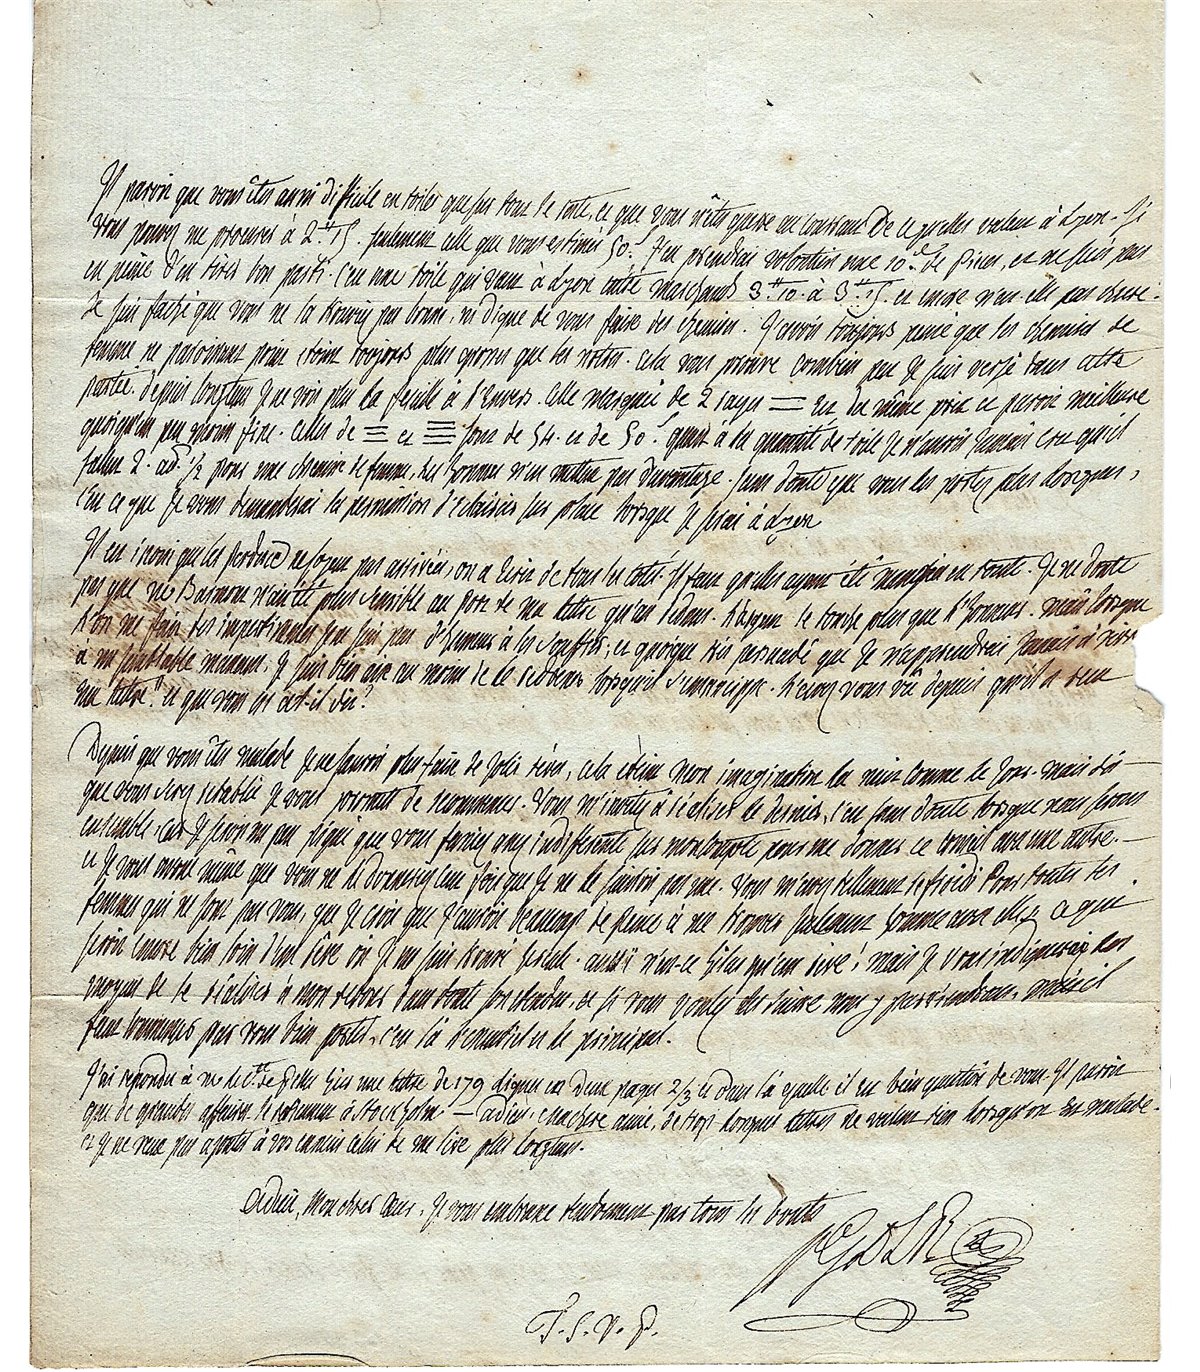 Il paroit que vous êtes aussi difficile en toiles que sur tout le reste, et que vous n'êtes guere au courant De ce qu'elles valent à Lyon. Si
vous pouvez me procurer à 2.ᵗᵗ 15ˢ. seulement celle que vous estimés 50.ˢ J'en prendrai volontiers une 10.ᵉ de pieces, et ne suis pas
en peine d'en tirer bon parti. C'est une toile qui vaut à Lyon entre marchands 3.ᵗᵗ 10. à 3.ᵗᵗ 15ˢ. et encore n'en elle pas
Je suis faché que vous ne la trouviez pas bonne, ni digne de vous faire des chemises. J'avois toujours pensé que les chemises de
femme ne étoient toujours plus grosses que les notres. cela vous prouve combien peu Je suis versé dans cette
partie. depuis longtems Je ne vois plus la feuille à l'Envers. Celle marquée de 2 rayes = Est du même prix et paroit meilleure
quoiqu'un peu moins fine. Celles de ≡ et sont de 54. et de 50.ˢ quant à la quantité de toile Je n'aurois Jamais cru qu'il
fallut 2. au.ˢ ½ pour une chemise de femme, les hommes n'en mettent pas d'avantage. Sans doute que vous les portez plus longues,
c'est ce que Je vous demanderai la permission d'éclaircir sur place lorsque Je serai à Lyon
Il est inoui que les ne soyent pas arrivées, on a Ecrit de tous les cotés. Il faut qu'elles ayent été en route. Je ne doute
pas que n'ait été plus sensible au port de ma lettre qu'au dedans. L'argent le touche plus que l'honneur. mais lorsque
l'on me fait des impertinences Je ne suis pas d'humeur à les souffrir, et quoique très persuadé que Je n'apprendrai Jamais à vivre
à un semblable manant. Je suis bien aise au moins de le redresser lorsqu'il s'émancippe. L'avez vous vû depuis qu'il a reçu
ma lettre? et que vous en a-t-il dit?
Depuis que vous êtes malade Je ne saurois plus faire de Jolis rêves, cela éteint mon imagination la nuit comme le Jour. mais dès
que vous serez retablie Je vous promets de recommencer. Vous m'invitez à réaliser le dernier, c'est sans doute lorsque nous serons
ensemble, car Je serois un peu piqué que vous fussiez assez indifferente sur mon compte pour me donner ce conseil avec une autre.
et Je vous avoue même que vous ne le donneriez une fois que Je ne le suivrois pas. Vous m'avez tellement refroidi pour toutes les
femmes qui ne sont pas vous, que Je crois que J'aurois beaucoup de peine à me tromper seulement comme avec elles, ce qui
seroit encore bien loin d'un rêve où Je me suis trouvé aussi n'est-ce là qu'un rêve! mais Je vous les
moyens de le réaliser à mon retour dans toute son étendue, et si vous voulez les suivre nous y parviendrons. mais il
faut commencer par vous bien porter, c'est là l'essentiel et le principal.
J'ai repondu à hier une lettre de 179 lignes en Deux pages 2/3 et dans laquelle il est bien question de vous. Il paroit
que de grandes affaires le retiennent à Stockholm. — adieu, chere amie, de trop longues lettres ne valent rien lorsqu'on est malade.
et Je ne veux pas ajouter à vos ennuis celui de me lire plus longtems.
adieu, mon cher Cœur. Je vous embrasse tendrement par tous les bouts
T. S. V. P.